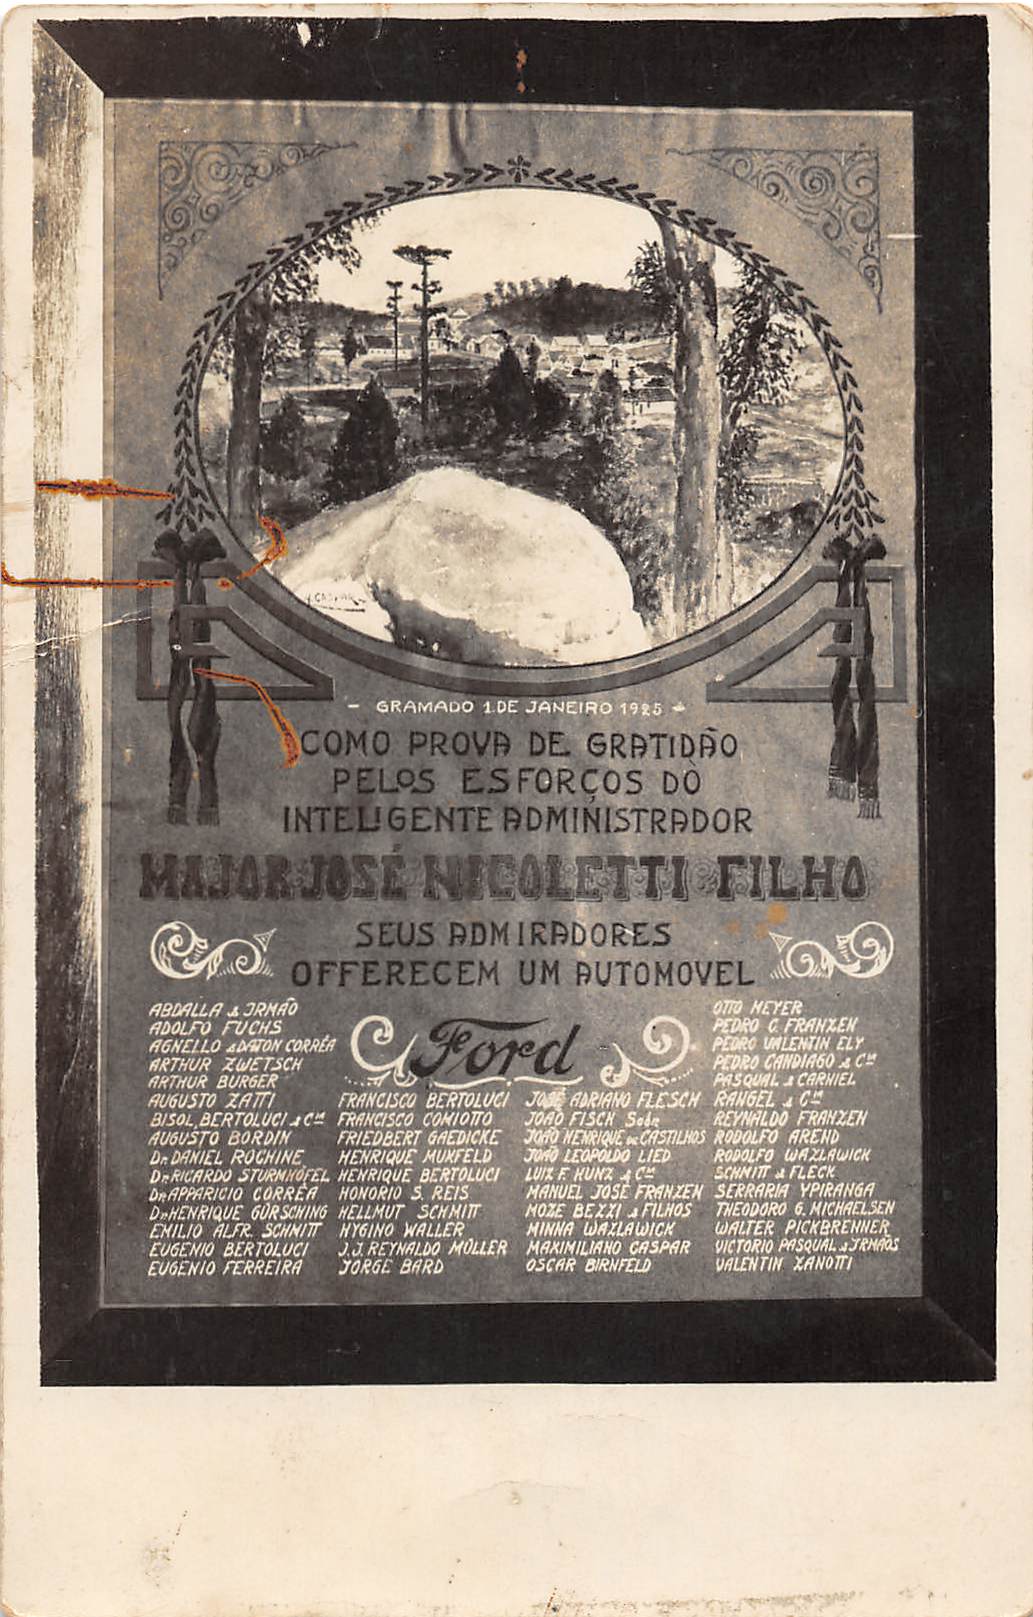 GASPAR
- GRAMADO 1. DE JANEIRO 1925 -
COMO PROVA DE GRATIDÃO
PELOS ESFORÇOS DO
INTELIGENTE ADMINISTRADOR
MAJOR JOSÉ NICOLETTI FILHO
SEUS ADMIRADORES
OFFERECEM UM AUTOMOVEL
Ford
ABDALLA & IRMÃO
ADOLFO FUCHS
AGNELLO & DATON CORRÊA
ARTHUR ZWETSCH
ARTHUR BURGER
AUGUSTO ZATTI
BISOL, BERTOLUCI & Cia
AUGUSTO BORDIN
Dr. DANIEL ROCHINE
Dr. RICARDO STURMHÖFEL
Dr. APPARICIO CORRÊA
Dr. HENRIQUE GÜRSCHING
EMILIO ALFR. SCHMITT
EUGENIO BERTOLUCI
EUGENIO FERREIRA
FRANCISCO BERTOLUCI
FRANCISCO COMIOTTO
FRIEDBERT GAEDICKE
HENRIQUE MUXFELD
HENRIQUE BERTOLUCI
HONORIO S. REIS
HELLMUT SCHMITT
HYGINO WALLER
J.J. REYNALDO MÜLLER
JORGE BARD
JOSÉ ADRIANO FLESCH
JOÃO FISCH Sobr.
JOÃO HENRIQUE DE CASTILHOS
JOÃO LEOPOLDO LIED
LUIZ F. KUNZ & Cia
MANUEL JOSÉ FRANZEN
MOZE BEZZI & FILHOS
MINNA WAZLAWICK
MAXIMILIANO GASPAR
OSCAR BIRNFELD
OTTO MEYER
PEDRO C. FRANZEN
PEDRO VALENTIN ELY
PEDRO CANDIAGO & Cia
PASQUAL & CARNIEL
RANGEL & Cia
REYNALDO FRANZEN
RODOLFO AREND
RODOLFO WAZLAWICK
SCHMITT & FLECK
SERRARIA YPIRANGA
THEODORO G. MICHAELSEN
WALTER PICKBRENNER
VICTORIO PASQUAL & IRMÃOS
VALENTIN ZANOTTI